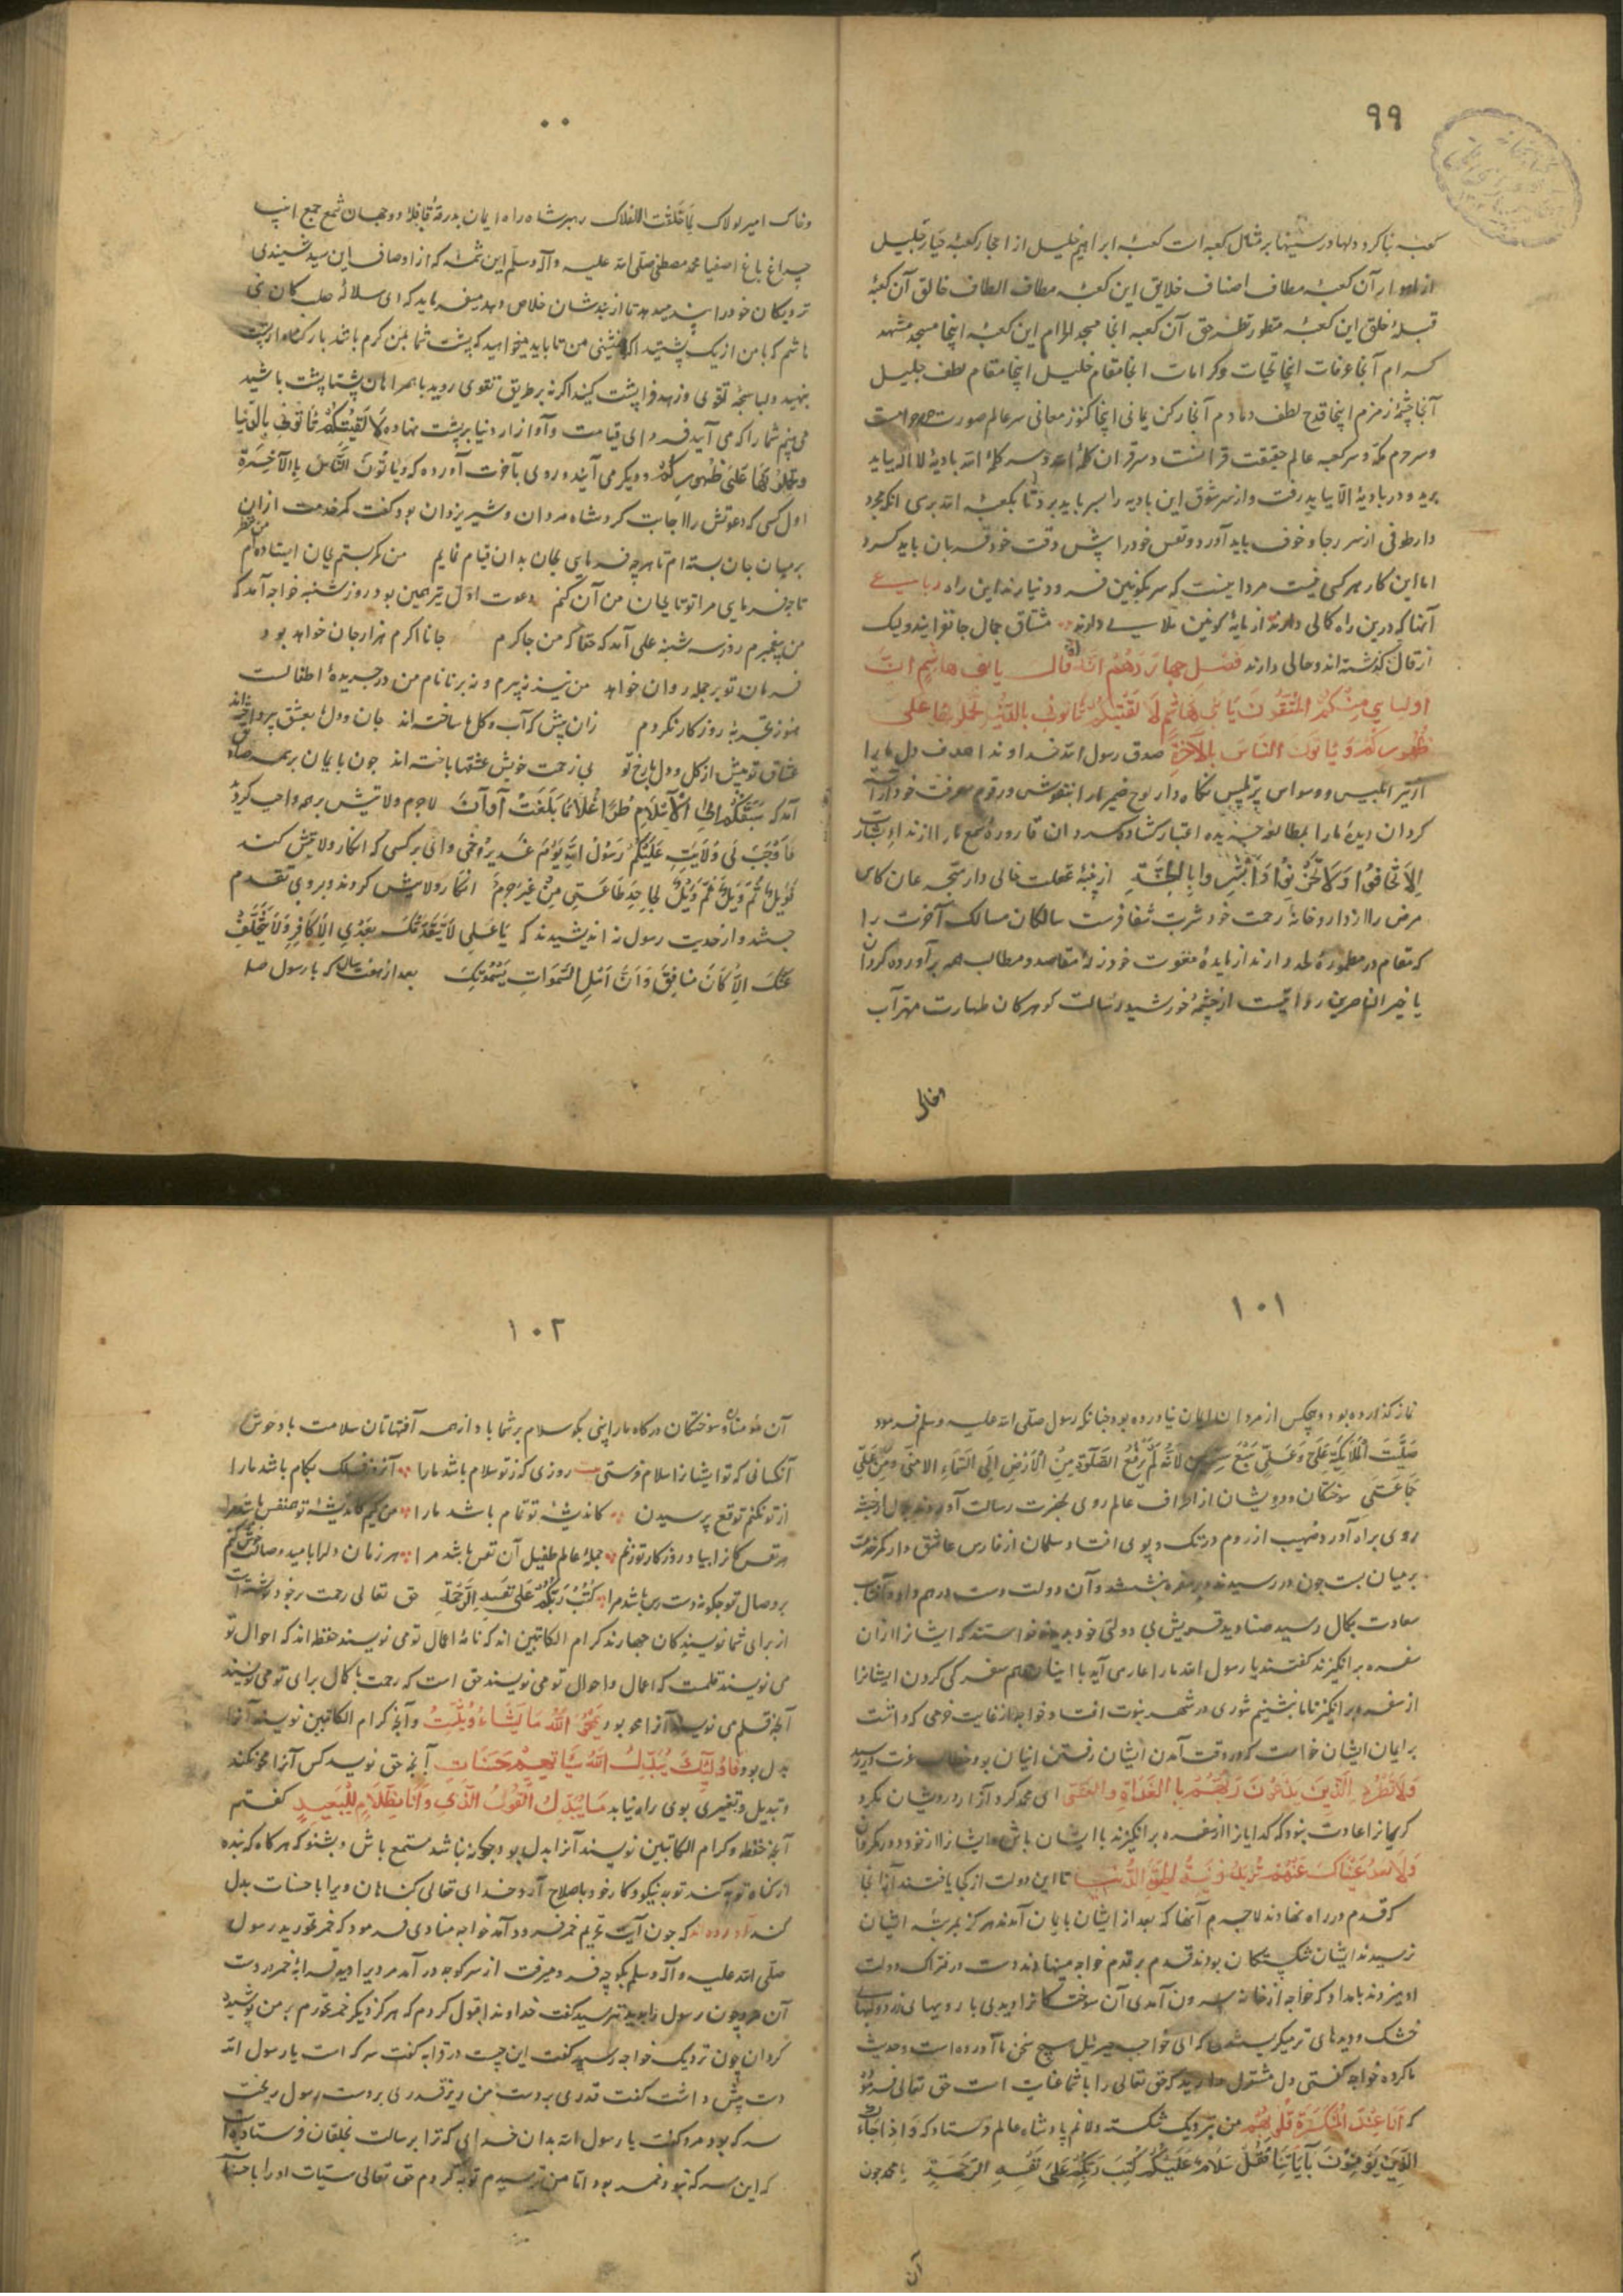 ٩٩
کعبه بنا کرد و دلها در سینها بر مثال کعبه است کعبهٔ ابراهیم خلیل از احجار کعبهٔ جبار جلیل
از انوار آن کعبهٔ مطاف اصناف خلایق این کعبه مطاف الطاف خالق آن کعبهٔ
قبلهٔ خلق این کعبهٔ منظور نظر حق آن کعبه انجا مسجد الحرام این کعبه اینجا مسجد مشهد
کرام آنجا عرفات اینجا تحیات و کرامات انجا مقام خلیل اینجا مقام لطف جلیل
آنجا چشمهٔ زمزم اینجا قدح لطف دمادم آنجا رکن یمانی اینجا کنوز معانی سر عالم صورت حرم است
و سر حرم مکه و سر کعبه عالم حقیقت قرانست و سر قران کلمهٔ الله و سر کلمهٔ الله بادیهٔ لا اله بباید
برید و در بادیهٔ الا بباید رفت و از سر شوق این بادیه را بسر باید برد تا بکعبهٔ الله بری انکه مجرد
وار طوفی از سر رجا و خوف باید آورد و نفس خود را پیش وقت خود قربان باید کرد
اما این کار هر کسی نیست مردا نیست که سر بکونین فرود نیارند این راه رباعی
آنها که درین راه کمالی دارند از مایهٔ کونین ملالی دارند مشتاق جمال جانفزایند ولیک
از قال گذشته اند و حالی دارند فصل چهاردهم انه قال یا بنی هاشم ان
اولیایی منکم المتقون یا بنی هاشم لا لقیتکم تاتونی بالدنیا تحملونها علی
ظهورکم و یاتون الناس بالاخرة صدق رسول الله خداوندا هدف دل ما را
از تیر ابلیس و وسواس پر تلبیس نگاه دار لوح ضمیر ما را بنقوش و رقوم معرفت خود آراسته
کردان دیدهٔ ما را بمطالعهٔ جریدهٔ اعتبار کشاده کردان قارورهٔ سمع ما را از نداء بشارت
الا تخافوا و لا تحزنوا و ابشروا بالجنة از پنبهٔ غفلت خالی دار متجرعان کاس
مرض را از داروخانهٔ رحمت خود شربت شفا فرست سالکان مسالک آخرت را
که مقام در مطمورهٔ لحد دارند از مایدهٔ مغفرت خود نزله مقاصد و مطالب همه برآورده کردان
یا خیر الناصرین روایتست از چشمهٔ خورشید رسالت گوهر کان طهارت مهتر آب
و خاک
٠٠
و خاک امیر لولاک لما خلقت الافلاک رهبر شاه راه ایمان بدرقهٔ قافلهٔ دو جهان شمع جمع انبیا
چراغ باغ اصفیا محمد مصطفی صلی الله علیه و آله و سلم این شمه که از اوصاف این سید شنیدی
نزدیکان خود را پند میدهد تا از بندشان خلاص دهد میفرماید که ای سلالهٔ صلب کان بنی
هاشم که با من از یک پشتید اگر همنشینی من تا باید میخواهید که پشت شما بمن گرم باشد بار گناه از پشت
بنهید و لباسجهٔ تقوی و زهد فرا پشت کنید اگر نه بر طریق تقوی روید با همراهان پشتا پشت باشید
می بینم شما را که می آیید فردای قیامت و آوازار دنیا بر پشت نهاده لا لقیتکم تاتونی بالدنیا
و تحملونها علی ظهورکم و دیگر می آیند و روی بآخرت آورده که و یاتون الناس بالاخرة
اول کسی که دعوتش را اجابت کرد شاه مردان و شیر یزدان بود گفت کمر خدمت ازان
بر میان جان بسته ام تا هر چه فرمایی بجان بدان قیام نمایم من کمر بستم بجان ایستاده ام
تا چه فرمایی مرا تو تا بجان من آن کنم دعوت اول تیر همین بود روز شنبه خواجه آمد که
من پیغمبرم روز سه شنبه علی آمد که حقا که من چاکرم جانا اکرم هزار جان خواهد بود
فرمان تو بر جمله روان خواهد من نیز نه پیرم و نه برنا نام من در جریدهٔ اطفالست
هنوز تجربهٔ روزگار نکردم زان پیش که آب و گلها ساخته اند جان و دل بعشق پرداخته اند
عشاق تو پیش از گل و دل بارخ تو بی زحمت خویش عشقها باخته اند چون با یمان بر همه صادق
آمد که سبقتکم الی الاسلام طرا غلاما بلغت اوان لاجرم ولایتش بر همه واجب کردند
فاوجب لی ولایته علیکم رسول الله یوم غدیر خم وای بر کسی که انکار ولایتش کند
فویل ثم ویل ثم ویل لجاحد طاعتی من غیر جرم انکار ولایتش کردند و بروی تقدم
جستند و از حدیث رسول نه اندیشیدند که یا علی لا یتقدمک بعدی الا کافر و لا یتخلف
عنک الا کان منافق و ان اهل السموات یسمونک بعد از هفت سال که با رسول صلعم
١٠١
نماز گذارده بود و هیچکس از مردان ایمان نیاورده بود چنانکه رسول صلی الله علیه و سلم فرمود
صلت الملائکة علی و علی علی سبع سنین لانه لم ترفع الصلوة من الارض الی السماء الا منی و من علی
جماعتی سوختگان و درویشان از اطراف عالم روی بحضرت رسالت آوردند بلال از حبشه
روی براه آورد و صهیب از روم در تک و پوی افتاد و سلمان از فارس عاشق وار کمر خدمت
بر میان بست چون در رسیدند و بر سفره بنشستند و آن دولت دست در هم داد و آفتاب
سعادت بکمال رسید صنادید قریش بی دولتی خود بدیدند خواستند که ایشانرا ازان
سفره برانگیزند گفتند یا رسول الله ما را عار می آید با اینان هم سفرگی کردن ایشانرا
از سفره برانگیز تا ما بنشینیم شوری در شهر نبوت افتاد خواجه از غایت حرصی که داشت
بر ایمان ایشان خواست که در وقت آمدن ایشان رفتن اینان بود خطاب عزت در رسید
و لا تطرد الذین یدعون ربهم بالغداة و العشی ای محمد گرد آزار درویشان مگرد
کریمانرا عادت نبود که گدایانرا از سفره برانگیزند با ایشان باش و ایشانرا از خود دور مگردان
و لا تعد عیناک عنهم ترید زینة الحیوة الدنیا تا این دولت از کجا یافتند آنجا
که قدم در راه نهادند لاجرم آنها که بعد از ایشان بایمان آمدند هرگز بمرتبهٔ ایشان
نرسیدند ایشان شکستگان بودند قدم بر قدم خواجه مینهادند دست در فتراک دولت
او میزدند بامداد که خواجه از خانه بیرون آمدی آن سوختگانرا دیدی با رویهای زرد و لبهای
خشک و دیدهای تر میگریستند که ای خواجه جبرئیل هیچ سخن ما آورده است و حدیث
ما کرده خواجه گفتی دل مشغول مدارید که حق تعالی را با شما عنایت است حق تعالی فرمود
که انا عند المنکسرة قلوبهم من نزدیک شکسته دلانم پادشاه عالم فرستاد که و اذا جاءک
الذین یومنون بآیاتنا فقل سلام علیکم کتب ربکم علی نفسه الرحمة یا محمد چون
آن
١٠٢
آن مؤمنان و سوختگان درگاه ما را بینی بگو سلام بر شما باد از همه آفتهاتان سلامت باد خوش
آنکسانی که تو ایشانرا سلام فرستی بیت روزی که ز تو سلام باشد ما را آنروز فلک بکام باشد ما را
از تو نکنم توقع پرسیدن کاندیشهٔ تو تمام باشد ما را من کیم کاندیشهٔ تو همنفس باشد مرا
هر نفس کانرا بیاد روزگار تو زنم جملهٔ عالم طفیل آن نفس باشد مرا هر زمان دلرا بامید وصالت خوش کنم
بر وصال تو چگونه دست رس باشد مرا کتب ربکم علی نفسه الرحمة حق تعالی رحمت بر خود نوشته است
از برای شما نویسندگان چهارند کرام الکاتبین اند که نامهٔ اعمال تو می نویسند حفظ اند که احوال تو
می نویسند قلمست که اعمال و احوال تو می نویسند حق است که رحمت با کمال برای تو می نویسند
آنچه قلم می نویسد آنرا محو بود یمحو الله ما یشاء و یثبت و آنچه کرام الکاتبین نویسند آنرا
بدل بود فاولئک یبدل الله سیئاتهم حسنات آنچه حق نویسد کس آنرا محو نکند
و تبدیل و تغییری بوی راه نیابد ما یبدل القول لدی و ما انا بظلام للعبید گفتم
آنچه حفظ و کرام الکاتبین نویسند آنرا بدل بود چگونه باشد مستمع باش و بشنو که هرگاه که بنده
از گناه توبه کند توبه نیکو و کار خود باصلاح آرد خدای تعالی گناهان ویرا با حسنات بدل
کند آورده اند که چون آیت تحریم خمر فرود آمد خواجه منادی فرمود که خمر مخورید رسول
صلی الله علیه و آله و سلم بکوچه فرو میرفت از سر کوچه در آمد مردیرا دید قرابهٔ خمر در دست
آن مرد چون رسول را بدید بترسید گفت خداوندا قبول کردم که هرگز دیگر خمر نخورم بر من پوشیده
گردان چون نزدیک خواجه رسید گفت این چیست در قرابه گفت سرکه است یا رسول الله
دست پیش داشت گفت قدری بر دست من ریز قدری بر دست رسول ریخت
سرکه بود مرد گفت یا رسول الله بدان خدای که ترا برسالت بخلقان فرستاده است
که این سرکه نبود خمر بود اما من ترسیدم توبه کردم حق تعالی سیئات او را با حسنات